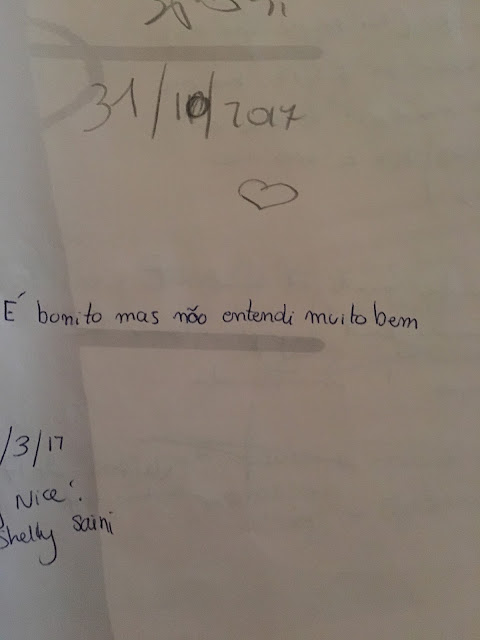 31/10/2017
É bonito mas não entendi muito bem
/3/17
Nice!
Shelly Saini